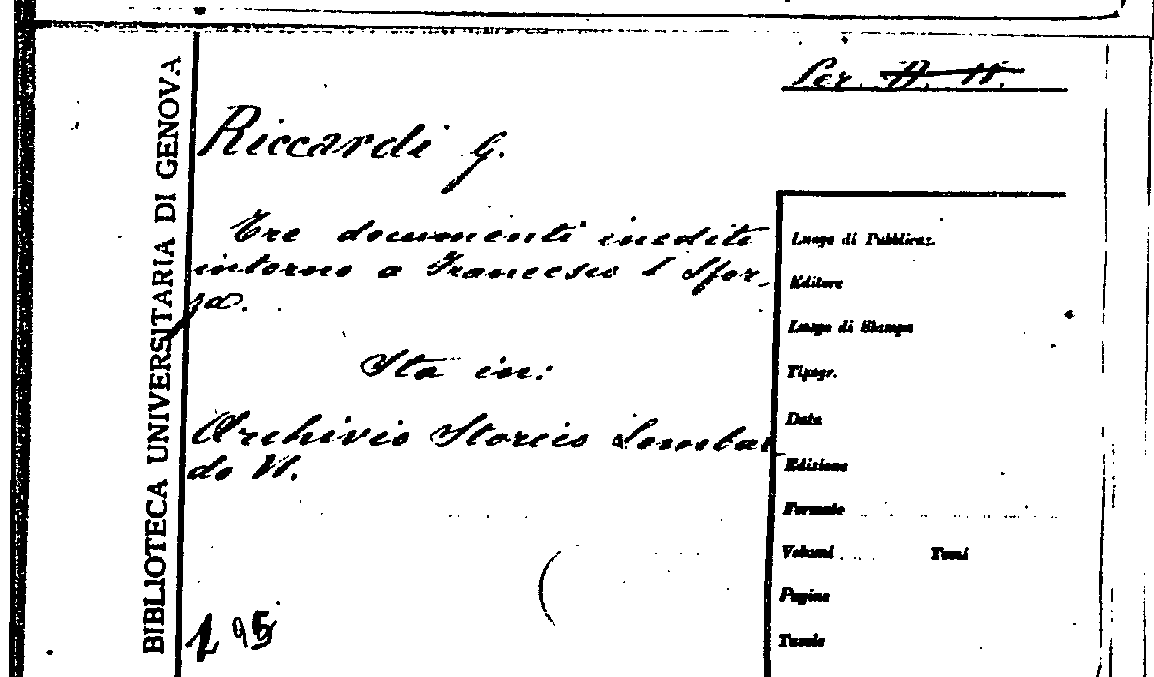 BIBLIOTECA UNIVERSITARIA DI GENOVA
Per. A. II.
Riccardi G.
Tre documenti inediti
intorno a Francesco I Sfor-
za.
Sta in:
Archivio Storico Lombar
do VI.
195
Luogo di Pubblicaz.
Editore
Luogo di Stampa
Tipogr.
Data
Edizione
Formato
Volumi Tomi
Pagine
Tavole